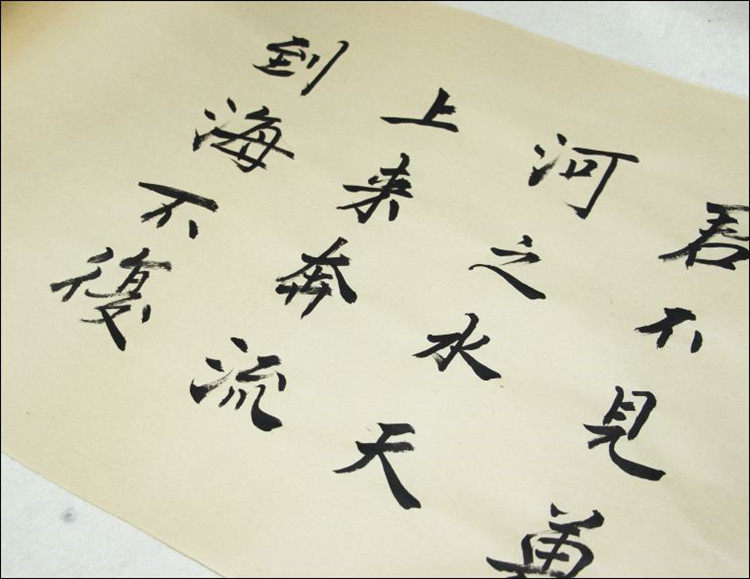 君不見黄
河之水天
上来奔流
到海不復